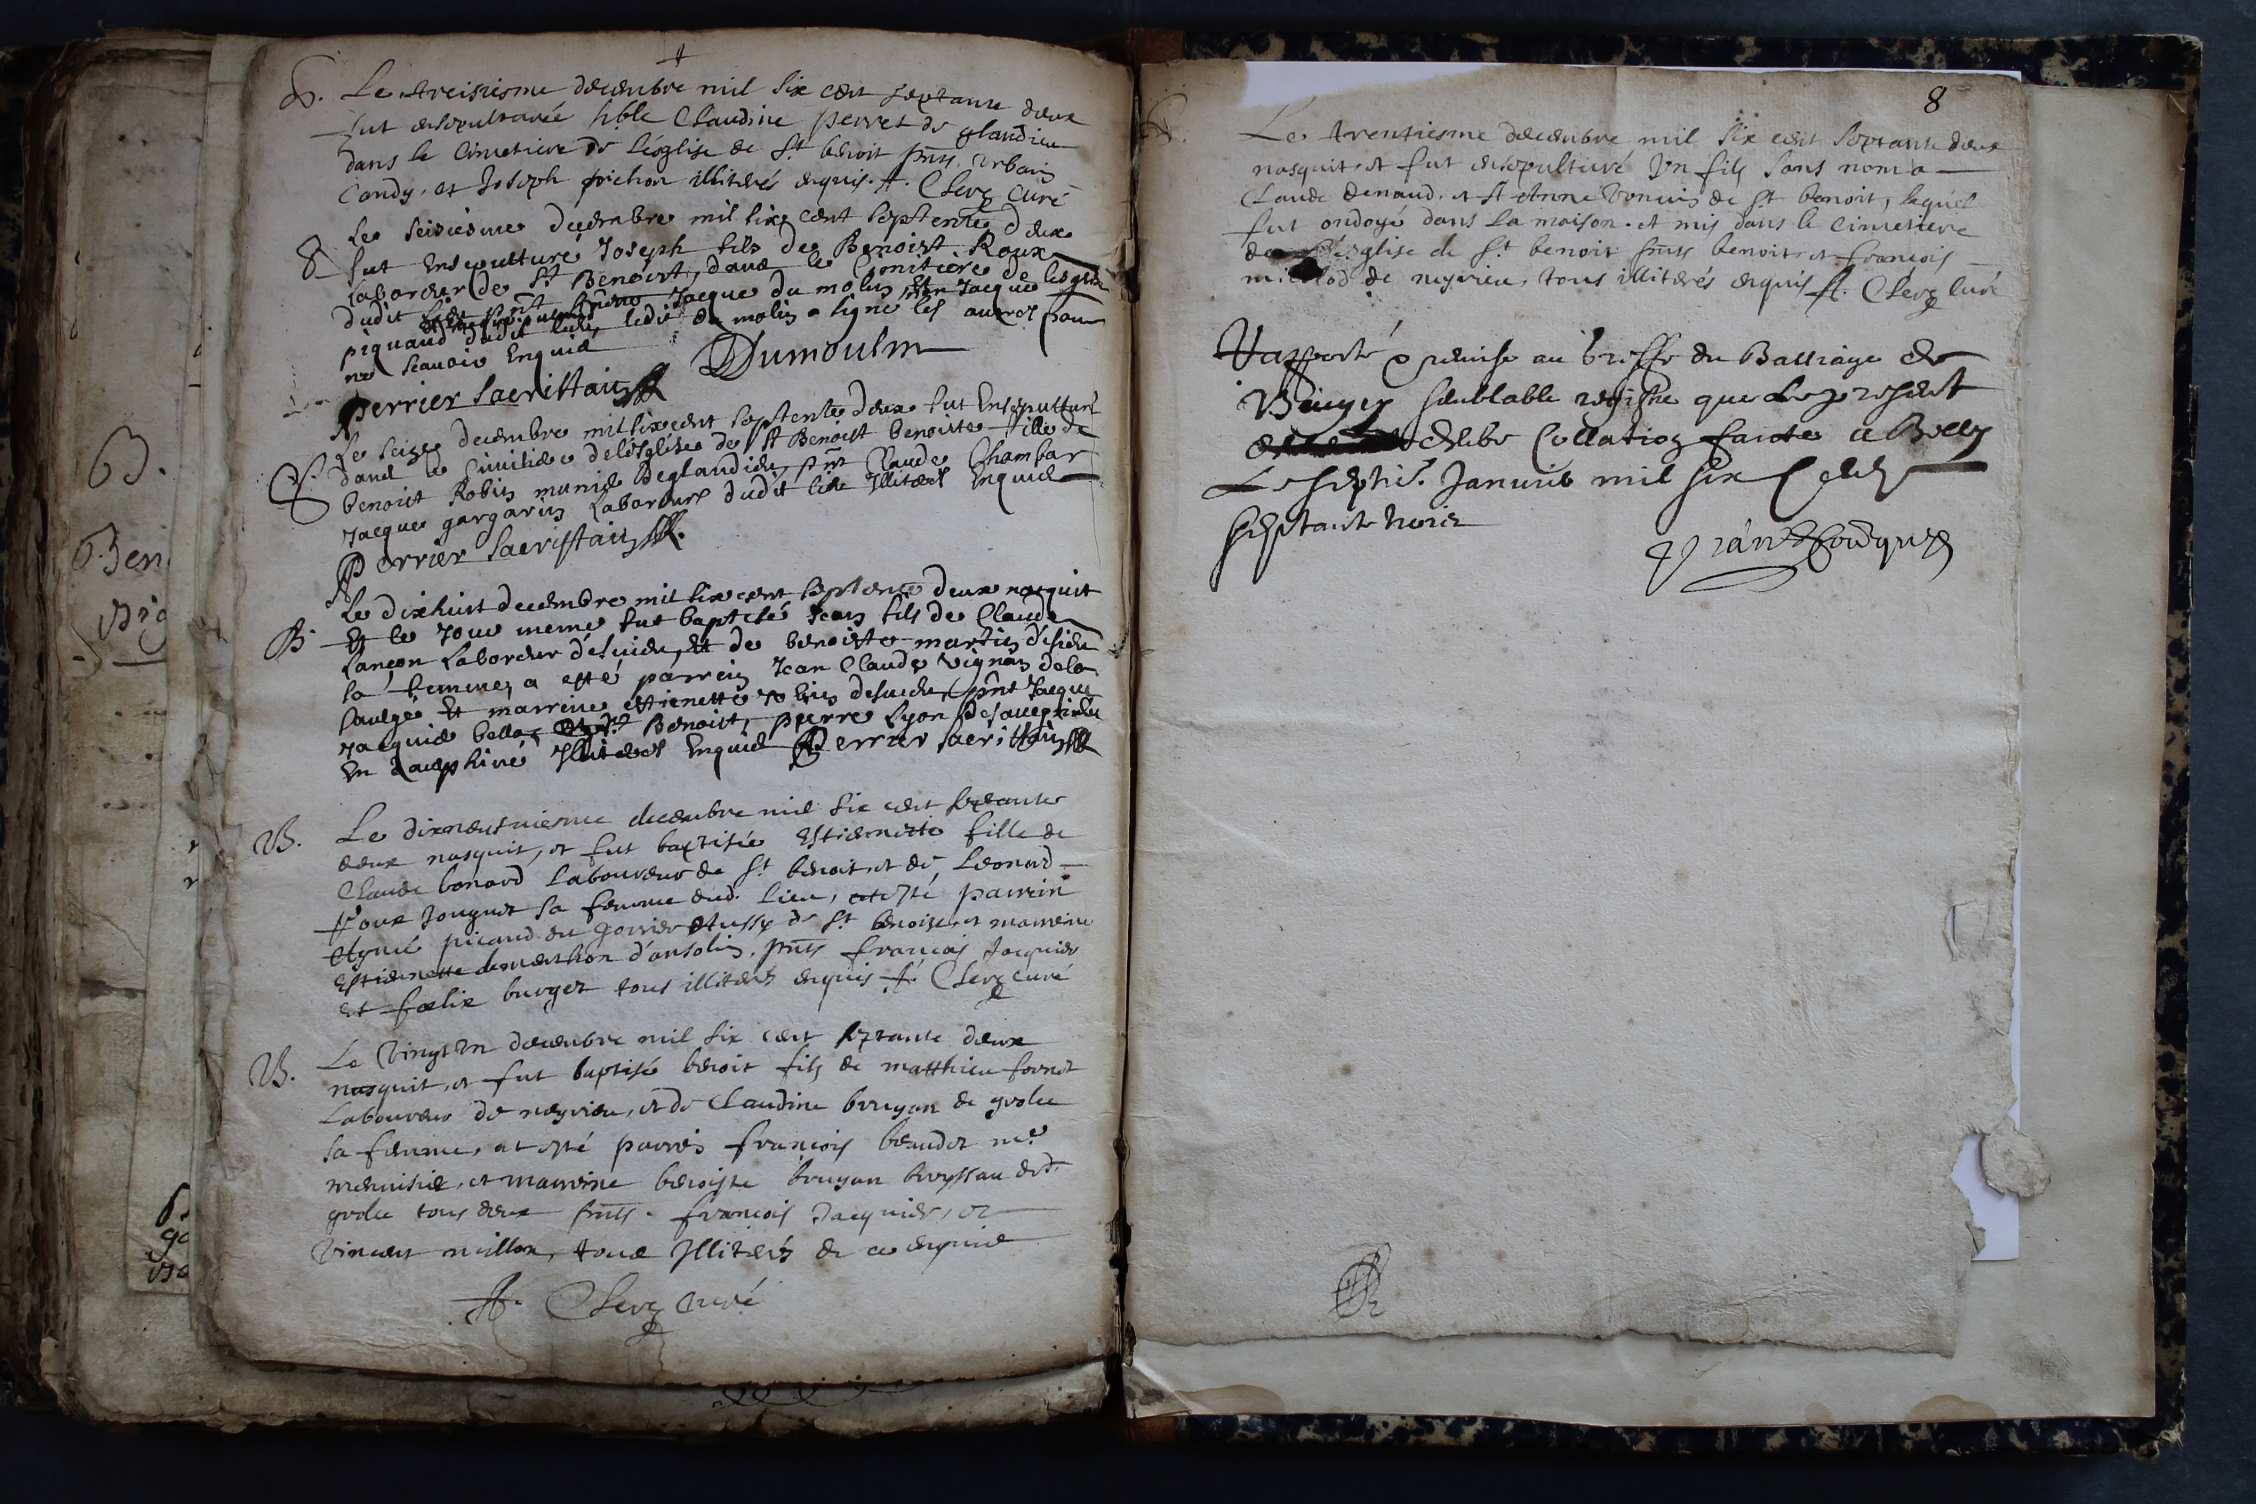 S. Le treisiesme decembre mil six cent septante deux
fut ensepulturée hble Claudine perret de glandieu
dans le cimetiere de l'esglise de St benoit pnts urbain
Candy, et Joseph pichon illiterés enquis. A. Clerg Curé
Le seiziesme decembre mil six cent septente deux
S fut Ensepulturé Joseph fils de Benoist Roux
Laborder de St Benoist, dans le Cimitiere de lesglise
dudit Jacque du molin et Jacque
piquand dudit lieu, ledit du molin a signé les autres pour
ne scavoir Enquis
Dumoulin
perrier Sacristain
Le seize decembre mil six cent septente deux fut Ensepulturé
S. dans le Cimitiere de lésglise de St Benoist benoiste fille de
benoist Robin munié deglandieu, pnt Claude Chambar
Jacque gargarin Laboreurs dudit lieu Illiterés Enquis
Perrier Sacristain
Le dixhuit decembre mil six cent septente deux nacquit
B Et le Jour meme fut baptisé Jean fils de Claude
Lançon Laboreur desuieu, et de benoiste martin d'esieu
sa femme, a esté parrein Jean Claude vignon dela
Et marreine ettienette robin desuieu, pnt Jacque
Jacquie Benoist, pierre Lyon
En dauphiné Illiterés Enquis Perrier sacristain
B. Le dixneufviesme decembre mil six cent septante
deux nasquit, et fut baptisée Estiennette fille de
Claude bonard Laboureur de St benoit et de Leonard
Roux Jouguet sa femme dud. lieu, at esté parrein
Aymé picaud du de St benoist, et marreine
Estiennette demerthon d'ansolin. pnts francois Jacquier
et foelix burget tous illiterés enquis A. Clerg curé
B. Le vingt un decembre mil six cent septante deux
nasquit, et fut baptisé benoit fils de matthieu fornet
Laboureur de neyrieu, et de Claudine bruyan de grolee
sa femme, at esté parrein francois beaudet me
menuisié, et marreine benoiste bruyan dud.
grolee tous deux pnts. francois Jacquier, et
Vincent millon, tous Illiterés de ce enquis
A. Clerg curé
8
S. Le trentiesme decembre mil six cent septante deux
nasquit, et fut ensepulturé Un fils sans nom a
Claude Denaud, et St Anne de St benoit, lequel
fut ondoyé dans La maison. et mis dans le cimetiere
de l'esglise de St benoit pnts benoit et francois
millod de neyrieu, tous illiterés enquis A. Clerg Curé
Rapporté & remise au Greffe du Balliage de
Beugey semblable registre que Le present
deube Collation faicte a Belley
Le septie. Janvie mil six Cent
septante trois